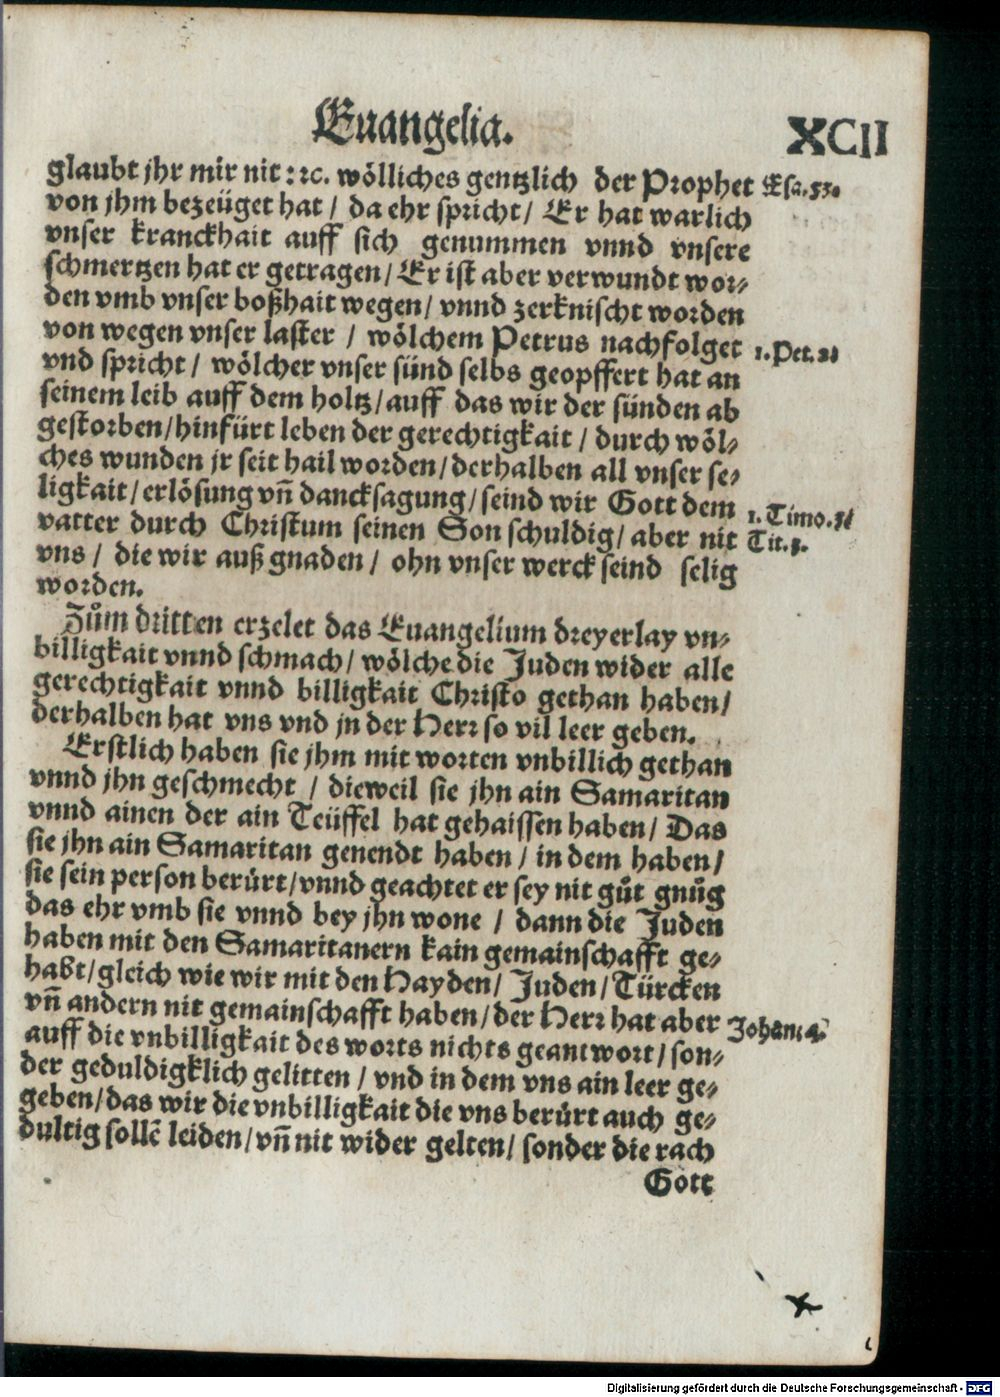 Euangelia. XCII
glaubt jhr mir nit : ꝛc. wölliches gentzlich der Prophet Esa. 53.
von jhm bezeüget hat / da ehr spricht / Er hat warlich
vnser kranckhait auff sich genummen vnnd vnsere
schmertzen hat er getragen / Er ist aber verwundt wor⸗
den vmb vnser boßhait wegen / vnnd zerknischt worden
von wegen vnser laster / wölchem Petrus nachfolget 1. Pet. 2
vnd spricht / wölcher vnser sünd selbs geopffert hat an
seinem leib auff dem holtz / auff das wir der sünden ab
gestorben / hinfürt leben der gerechtigkait / durch wöl⸗
ches wunden jr seit hail worden / derhalben all vnser se⸗
ligkait / erlösung vñ dancksagung / seind wir Gott dem 1. Timo.
vatter durch Christum seinen Son schuldig / aber nit Tit. 3.
vns / die wir auß gnaden / ohn vnser werck seind selig
worden.
Zům dritten erzelet das Euangelium dreyerlay vn⸗
billigkait vnnd schmach / wölche die Juden wider alle
gerechtigkait vnnd billigkait Christo gethan haben /
derhalben hat vns vnd jn der Herꝛ so vil leer geben.
Erstlich haben sie jhm mit worten vnbillich gethan
vnnd jhn geschmecht / dieweil sie jhn ain Samaritan
vnnd ainen der ain Teüffel hat gehaissen haben / Das
sie jhn ain Samaritan genendt haben / in dem haben /
sie sein person berürt / vnnd geachtet er sey nit gůt gnůg
das ehr vmb sie vnnd bey jhn wone / dann die Juden
haben mit den Samaritanern kain gemainschafft ge⸗
habt / gleich wie wir mit den Hayden / Juden / Türcken
vñ andern nit gemainschafft haben / der Herꝛ hat aber Johan. 4.
auff die vnbilligkait des worts nichts geantwort / son⸗
der geduldigklich gelitten / vnd in dem vns ain leer ge⸗
geben / das wir die vnbilligkait die vns berürt auch ge⸗
dultig sollē leiden / vñ nit wider gelten / sonder die rach
Gott
Digitalisierung gefördert durch die Deutsche Forschungsgemeinschaft - DFG